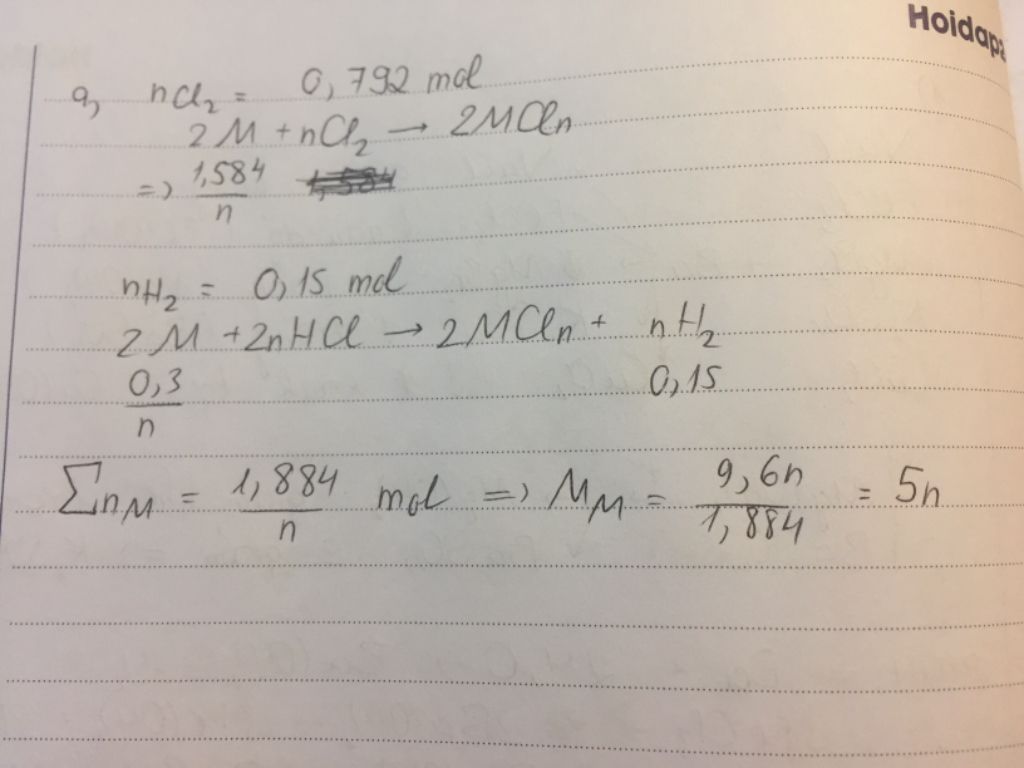 Hoidap
a, nCl2 = 0,792 mol
2M + nCl2 → 2MCln
=> 1,584/n
nH2 = 0,15 mol
2M + 2nHCl → 2MCln + nH2
0,3/n 0,15
∑nM = 1,884/n mol => MM = 9,6n/1,884 = 5n